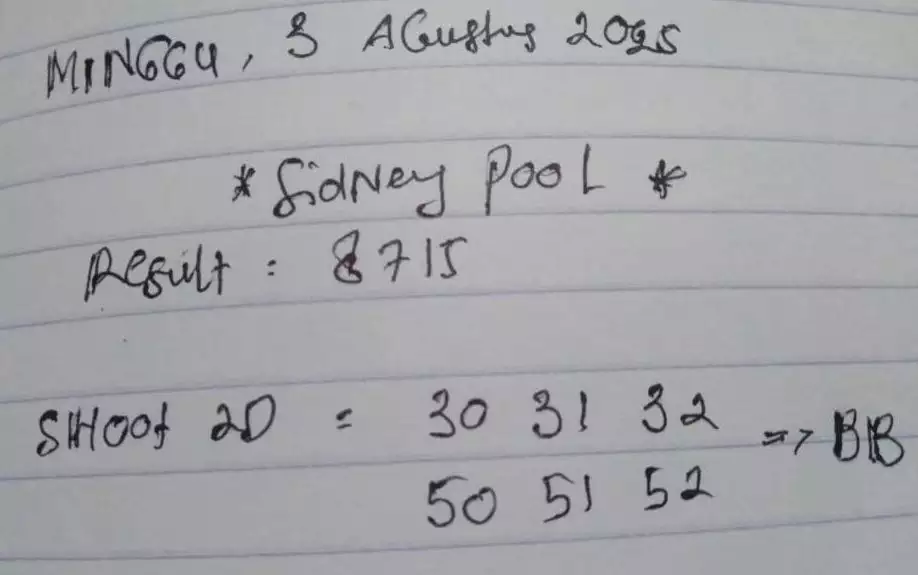 MINGGU, 3 AGustus 2025
* Sidney Pool *
Result : 8715
SHoot 2D = 30 31 32 => BB
50 51 52